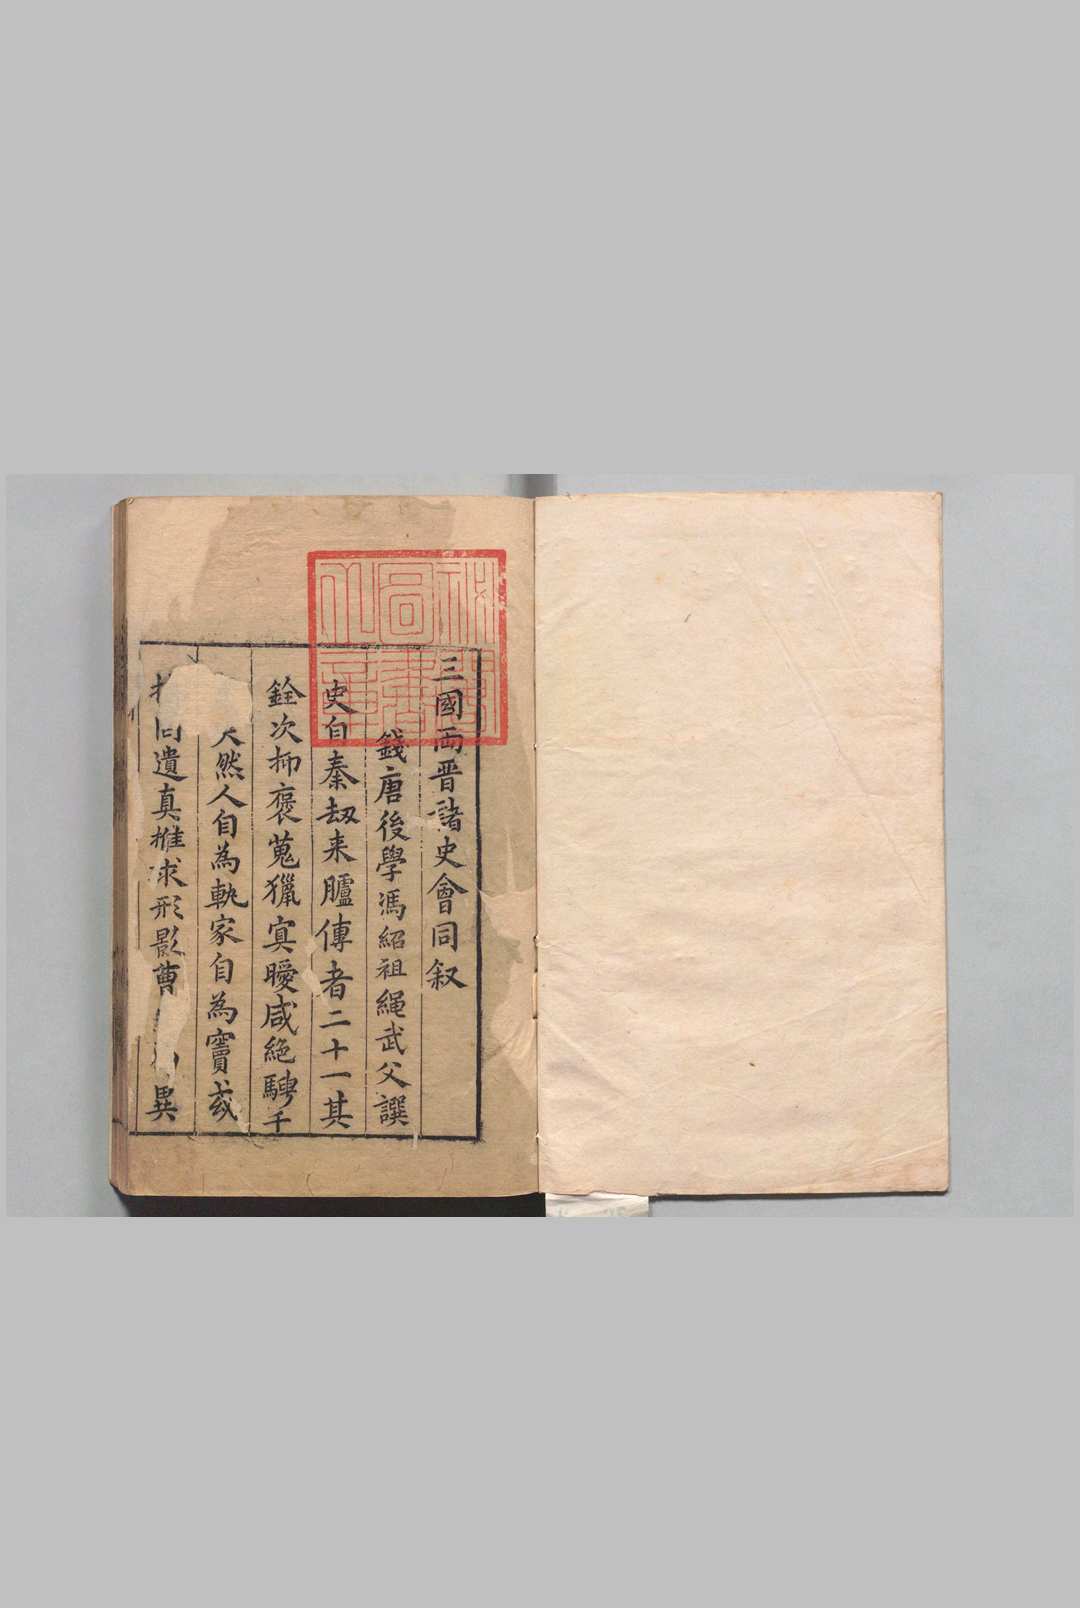 三國兩晋諸史會同叙
錢唐後學馮紹祖繩武父譔
史自秦刼来臚傳者二十一其
銓次抑褒蒐獵㝠曖咸絶騁千
然人自為軌家自為竇或
遺真推求形影曹異